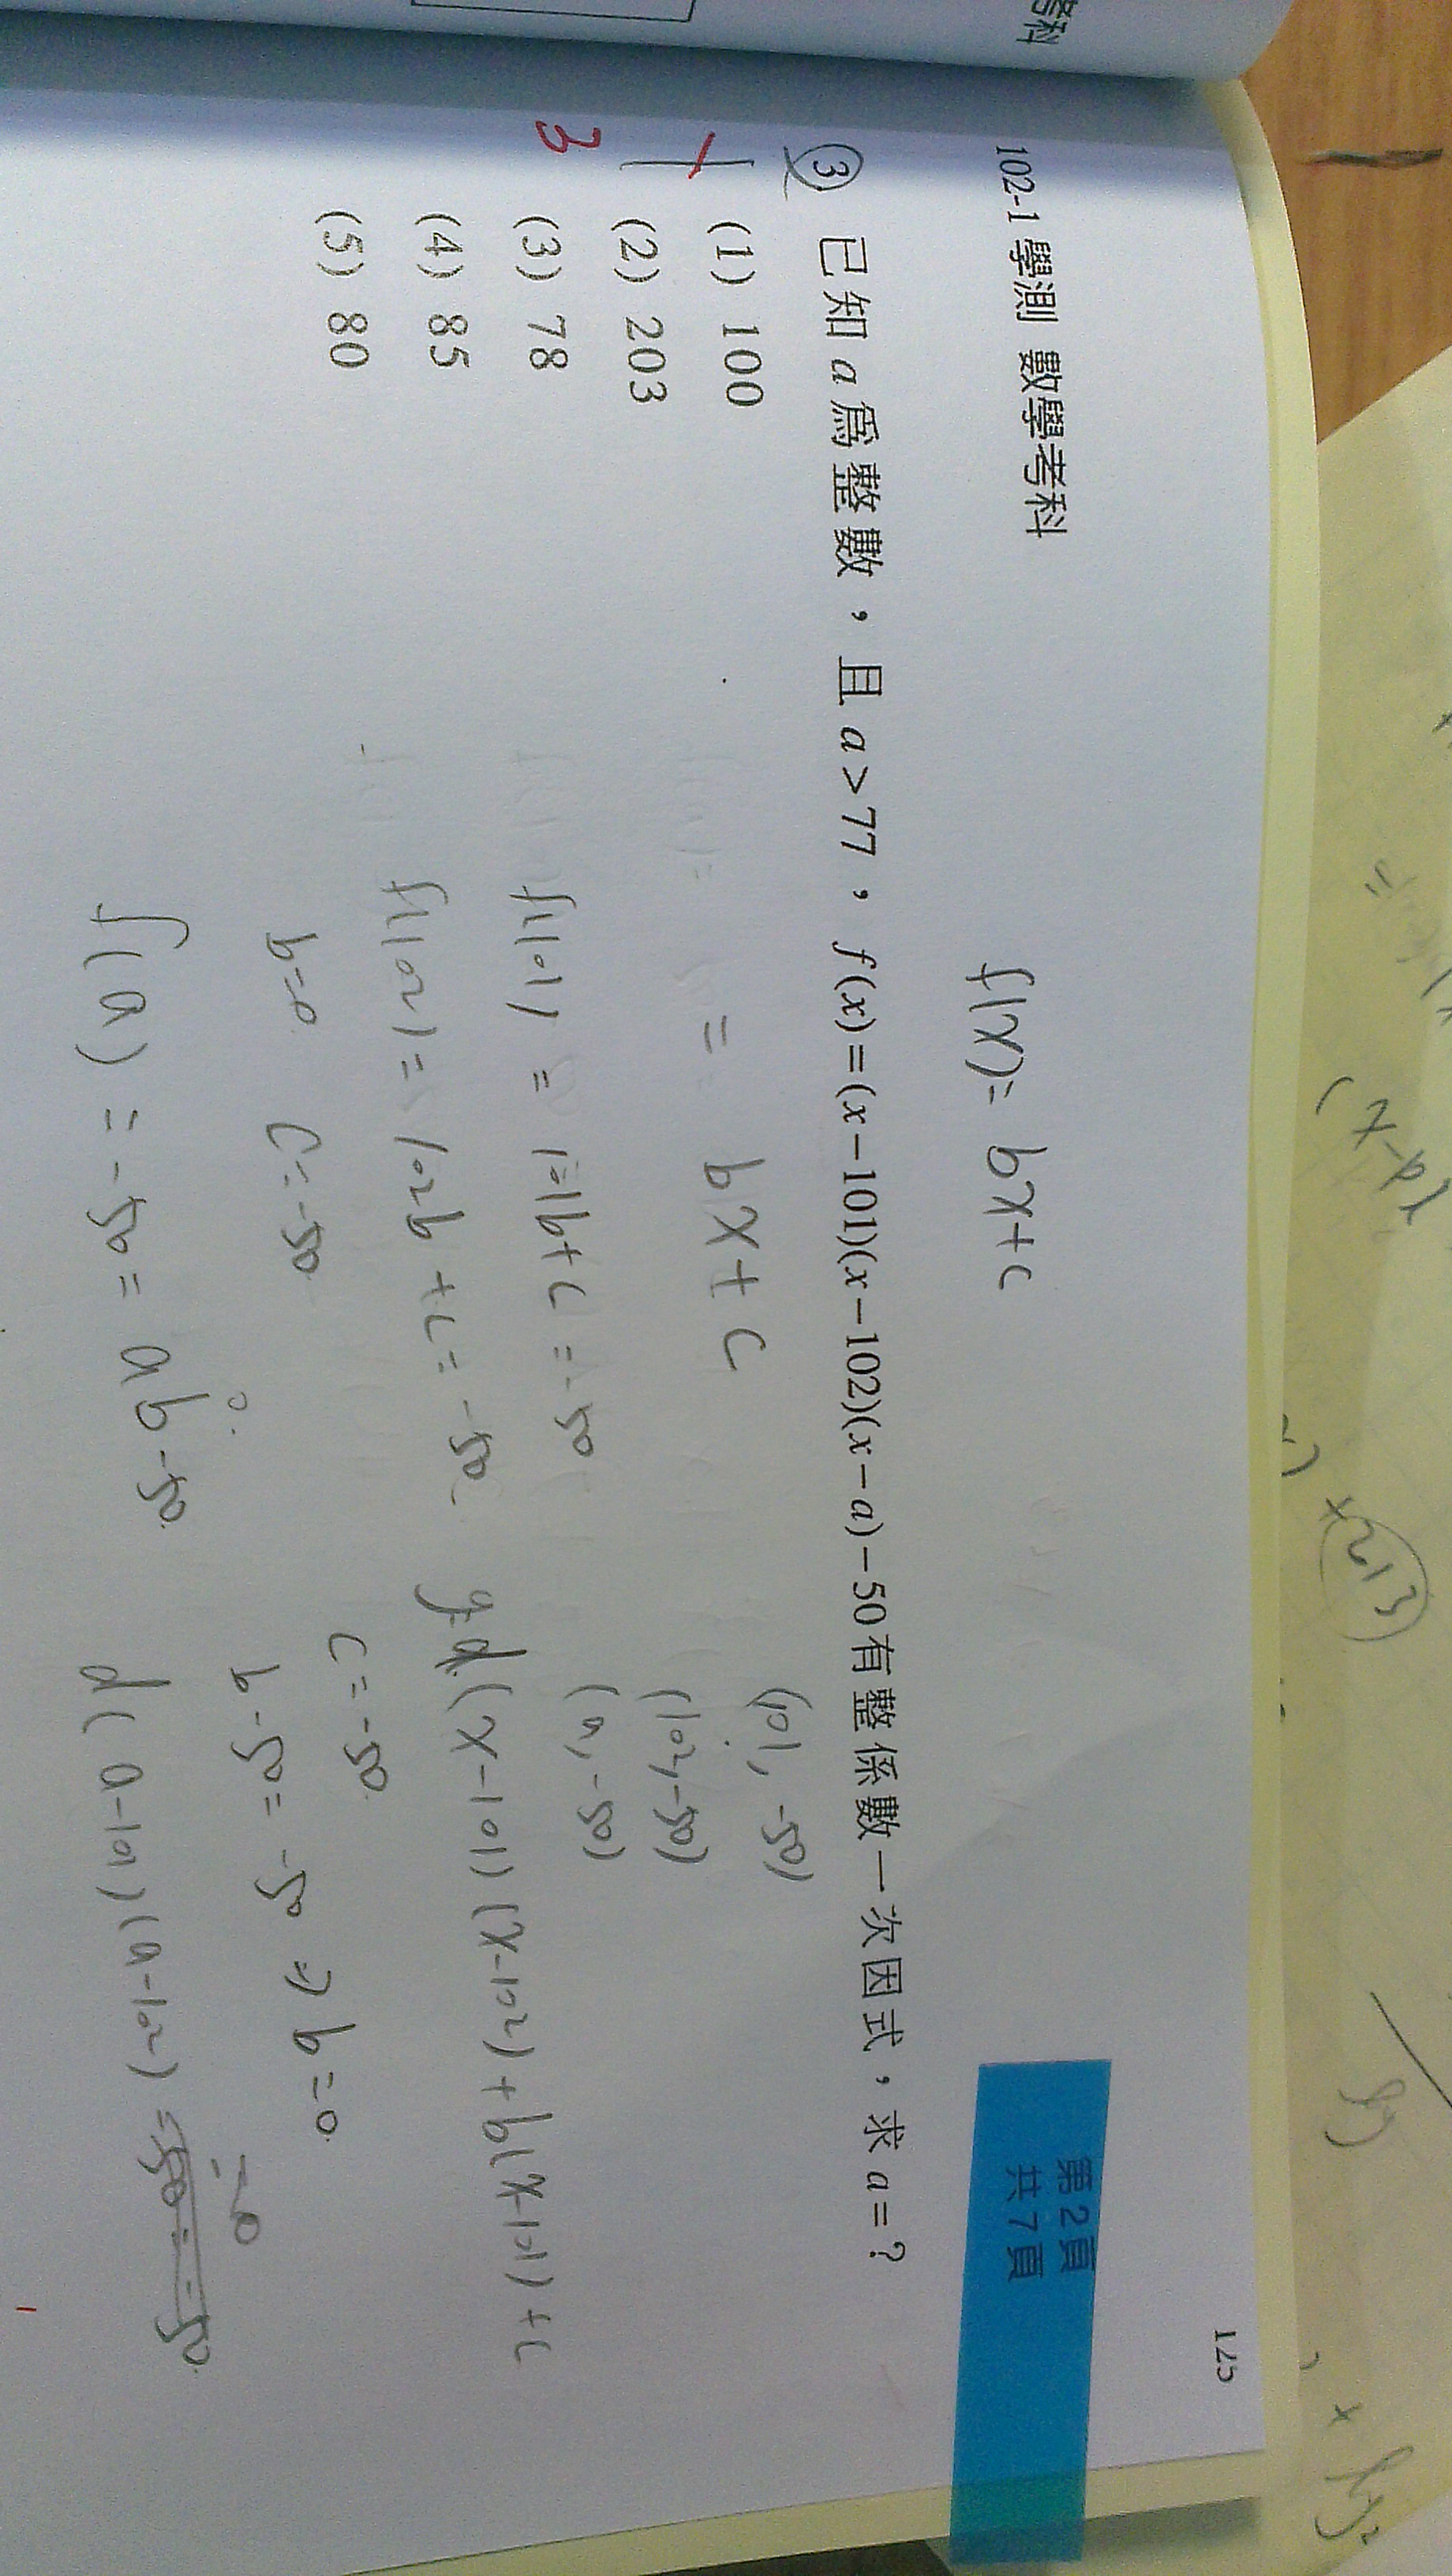 考科
102-1 學測 數學考科
第 2 頁
共 7 頁
125
f(x) = bx+c
③ 已知 a 為整數，且 a＞77，f(x)=(x−101)(x−102)(x−a)−50 有整係數一次因式，求 a=？
(1) 100
(2) 203
(3) 78
(4) 85
(5) 80
3
= bx + c
f(101) = 101b+c = -50
f(102) = 102b + c = -50
b=0 c=-50
f(a) = -50 = ab-50
(101, -50)
(102, -50)
(a, -50)
d(x-101)(x-102) + b(x-101) + c
c = -50
b-50 = -50 ⇒ b=0
d(a-101)(a-102) =
=0
x 213